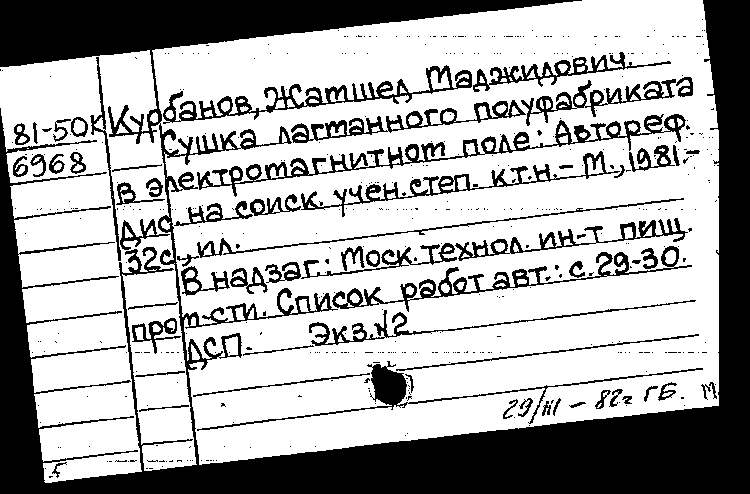 81-50К Курбанов, Жамшед Маджидович.
6968 Сушка лагманного полуфабриката
в электромагнитном поле: Автореф.
дис. на соиск. учен. степ. к.т.н. – М., 1981. –
32с., ил.
В надзаг.: Моск. технол. ин-т пищ.
пром-сти. Список работ авт.: с.29-30.
ДСП. Экз.№2.
29/III – 82г ГБ. М
Б